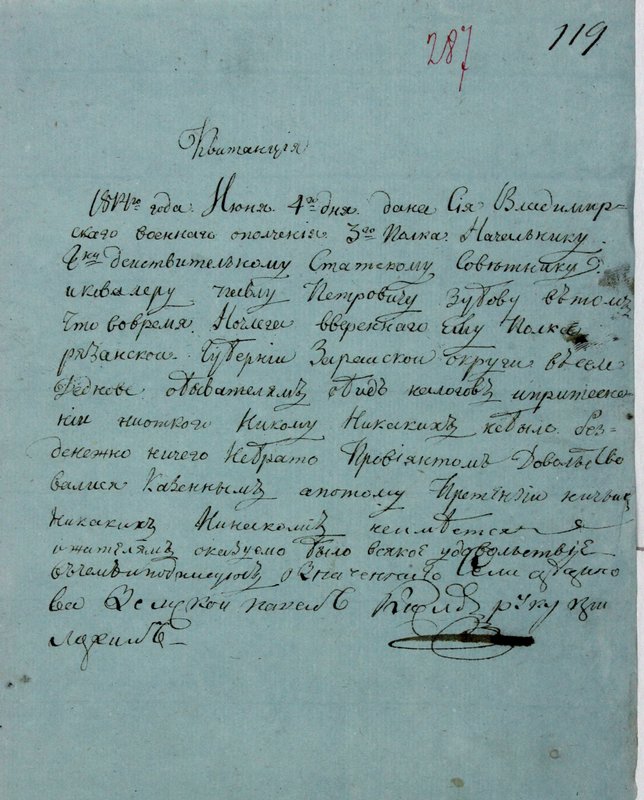 287
119
Квитанція
1814го года. Июня. 4го дня. дана Сія Владимир-
скаго военнаго ополченія 3го Полка. Начельнику.
Гну действительному Статскому Советнику
и кавалеру Павлу Петровичу Зубову въ томъ
Что вовремя. Ночлега ввереннаго ему Полка
резанской. Губерніи Зарайской округи въ селе
обывателямъ обидъ налоговъ и притесне-
ніи ниоткого Никому Никакихъ небыло без-
денежно ничего Небрато Провіянтомъ Доволь
валися Казеннымъ апотому Претензіи
Никакихъ Нинакомъ неимѣется
и жителямъ оказуемо было всякое удовольствіе
въ чемъ и подписуюсь означеннаго Села
руку при
ложилъ